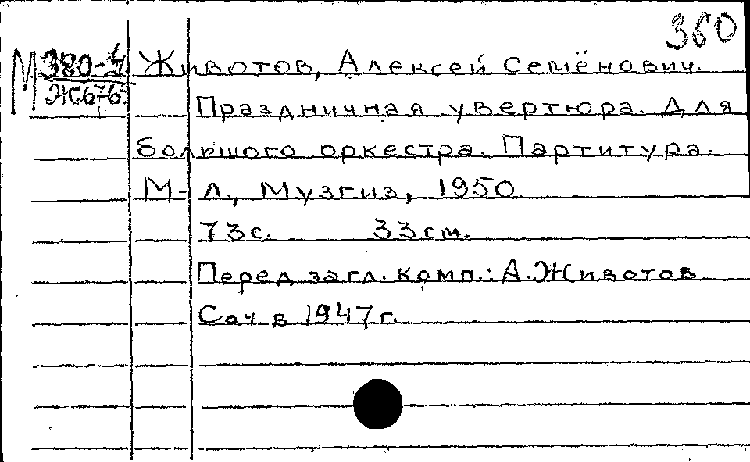 360
М 380-4
Ж676
Животов, Алексей Семёнович.
Праздничная увертюра. Для
большого оркестра. Партитура.
М-Л., Музгиз, 1950
73с. 33см.
Перед загл. комп.: А. Животов
Соч в 1947г.